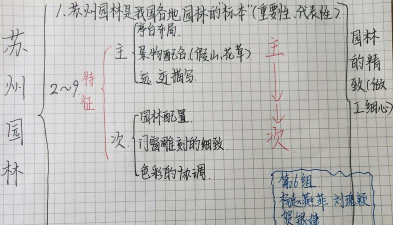 苏州园林
1.苏州园林是我国各地园林的"标本"(重要性、代表性)
2~9
特征
主
亭台布局
景物配合(假山、花草)
远近描写
次
园林配置
门窗雕刻的细致
色彩的协调
主
次
园林的精致(做工细心)
第六组